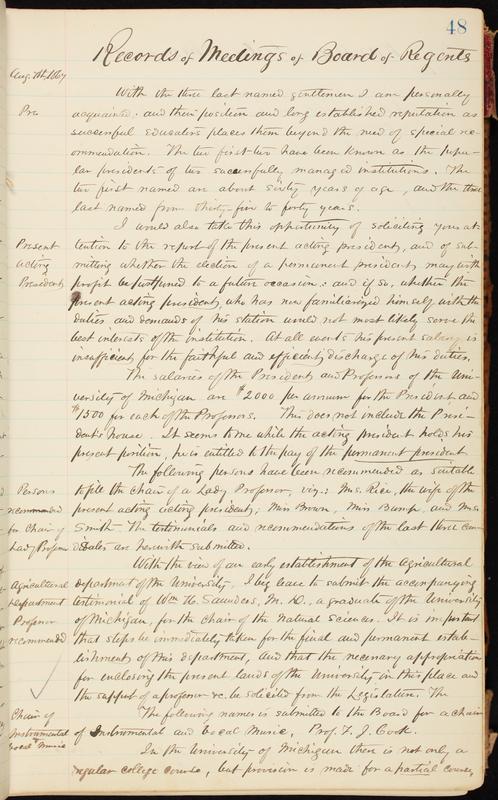 48
Records of Meetings of Board of Regents
Aug. 1867
With the three last named gentlemen I am personally
Pre
acquainted; and their position and long established reputation as
successful educators places them beyond the need of special rec-
ommendation. The two first two have been known as the popu-
lar presidents of two successfully managed institutions. The
two first named are about sixty years of age, and the three
last named from thirty-five to forty years.
I would also take this opportunity of soliciting your at-
Present
tention to the report of the present acting president, and of sub-
acting
mitting whether the election of a permanent president may with
President
profit be postponed to a future occasion; and if so, whether the
present acting president, who has now familiarized himself with the
duties and demands of his station would not most likely serve the
best interests of the institution. At all events his present salary is
insufficient for the faithful and efficient discharge of his duties.
The salaries of the Presidents and Professors of the Uni-
versity of Michigan are $2000 per annum for the President and
$1500 for each of the Professors. This does not include the Presi-
dent's house. It seems to me while the acting president holds his
present position, he is entitled to the pay of the permanent president
The following persons have been recommended as suitable
Persons
to fill the chair of a Lady Professor, viz.: Mrs. Rice, the wife of the
recommended
present acting acting president; Miss Brown, Miss Bump, and Mrs
for Chair of
Smith. The testimonials and recommendations of the last three can-
Lady Professor
didates are herewith submitted.
With the view of an early establishment of the Agricultural
Agricultural
department of the University, I beg leave to submit the accompanying
Department
testimonial of Wm H. Saunders, M. D., a graduate of the University
Professor
of Michigan, for the chair of the Natural Sciences. It is important
recommended
that steps be immediately taken for the final and permanent estab-
lishment of this department, and that the necessary appropriation
for enclosing the present lands of the University in this place and
the support of a professor &c. be solicited from the Legislature. The
Chair of
The following name is submitted to the Board for a chair
Instrumental
of Instrumental and Vocal Music, Prof. F. J. Cook.
Vocal Music
In the University of Michigan there is not only a
regular college course, but provision is made for a partial course,